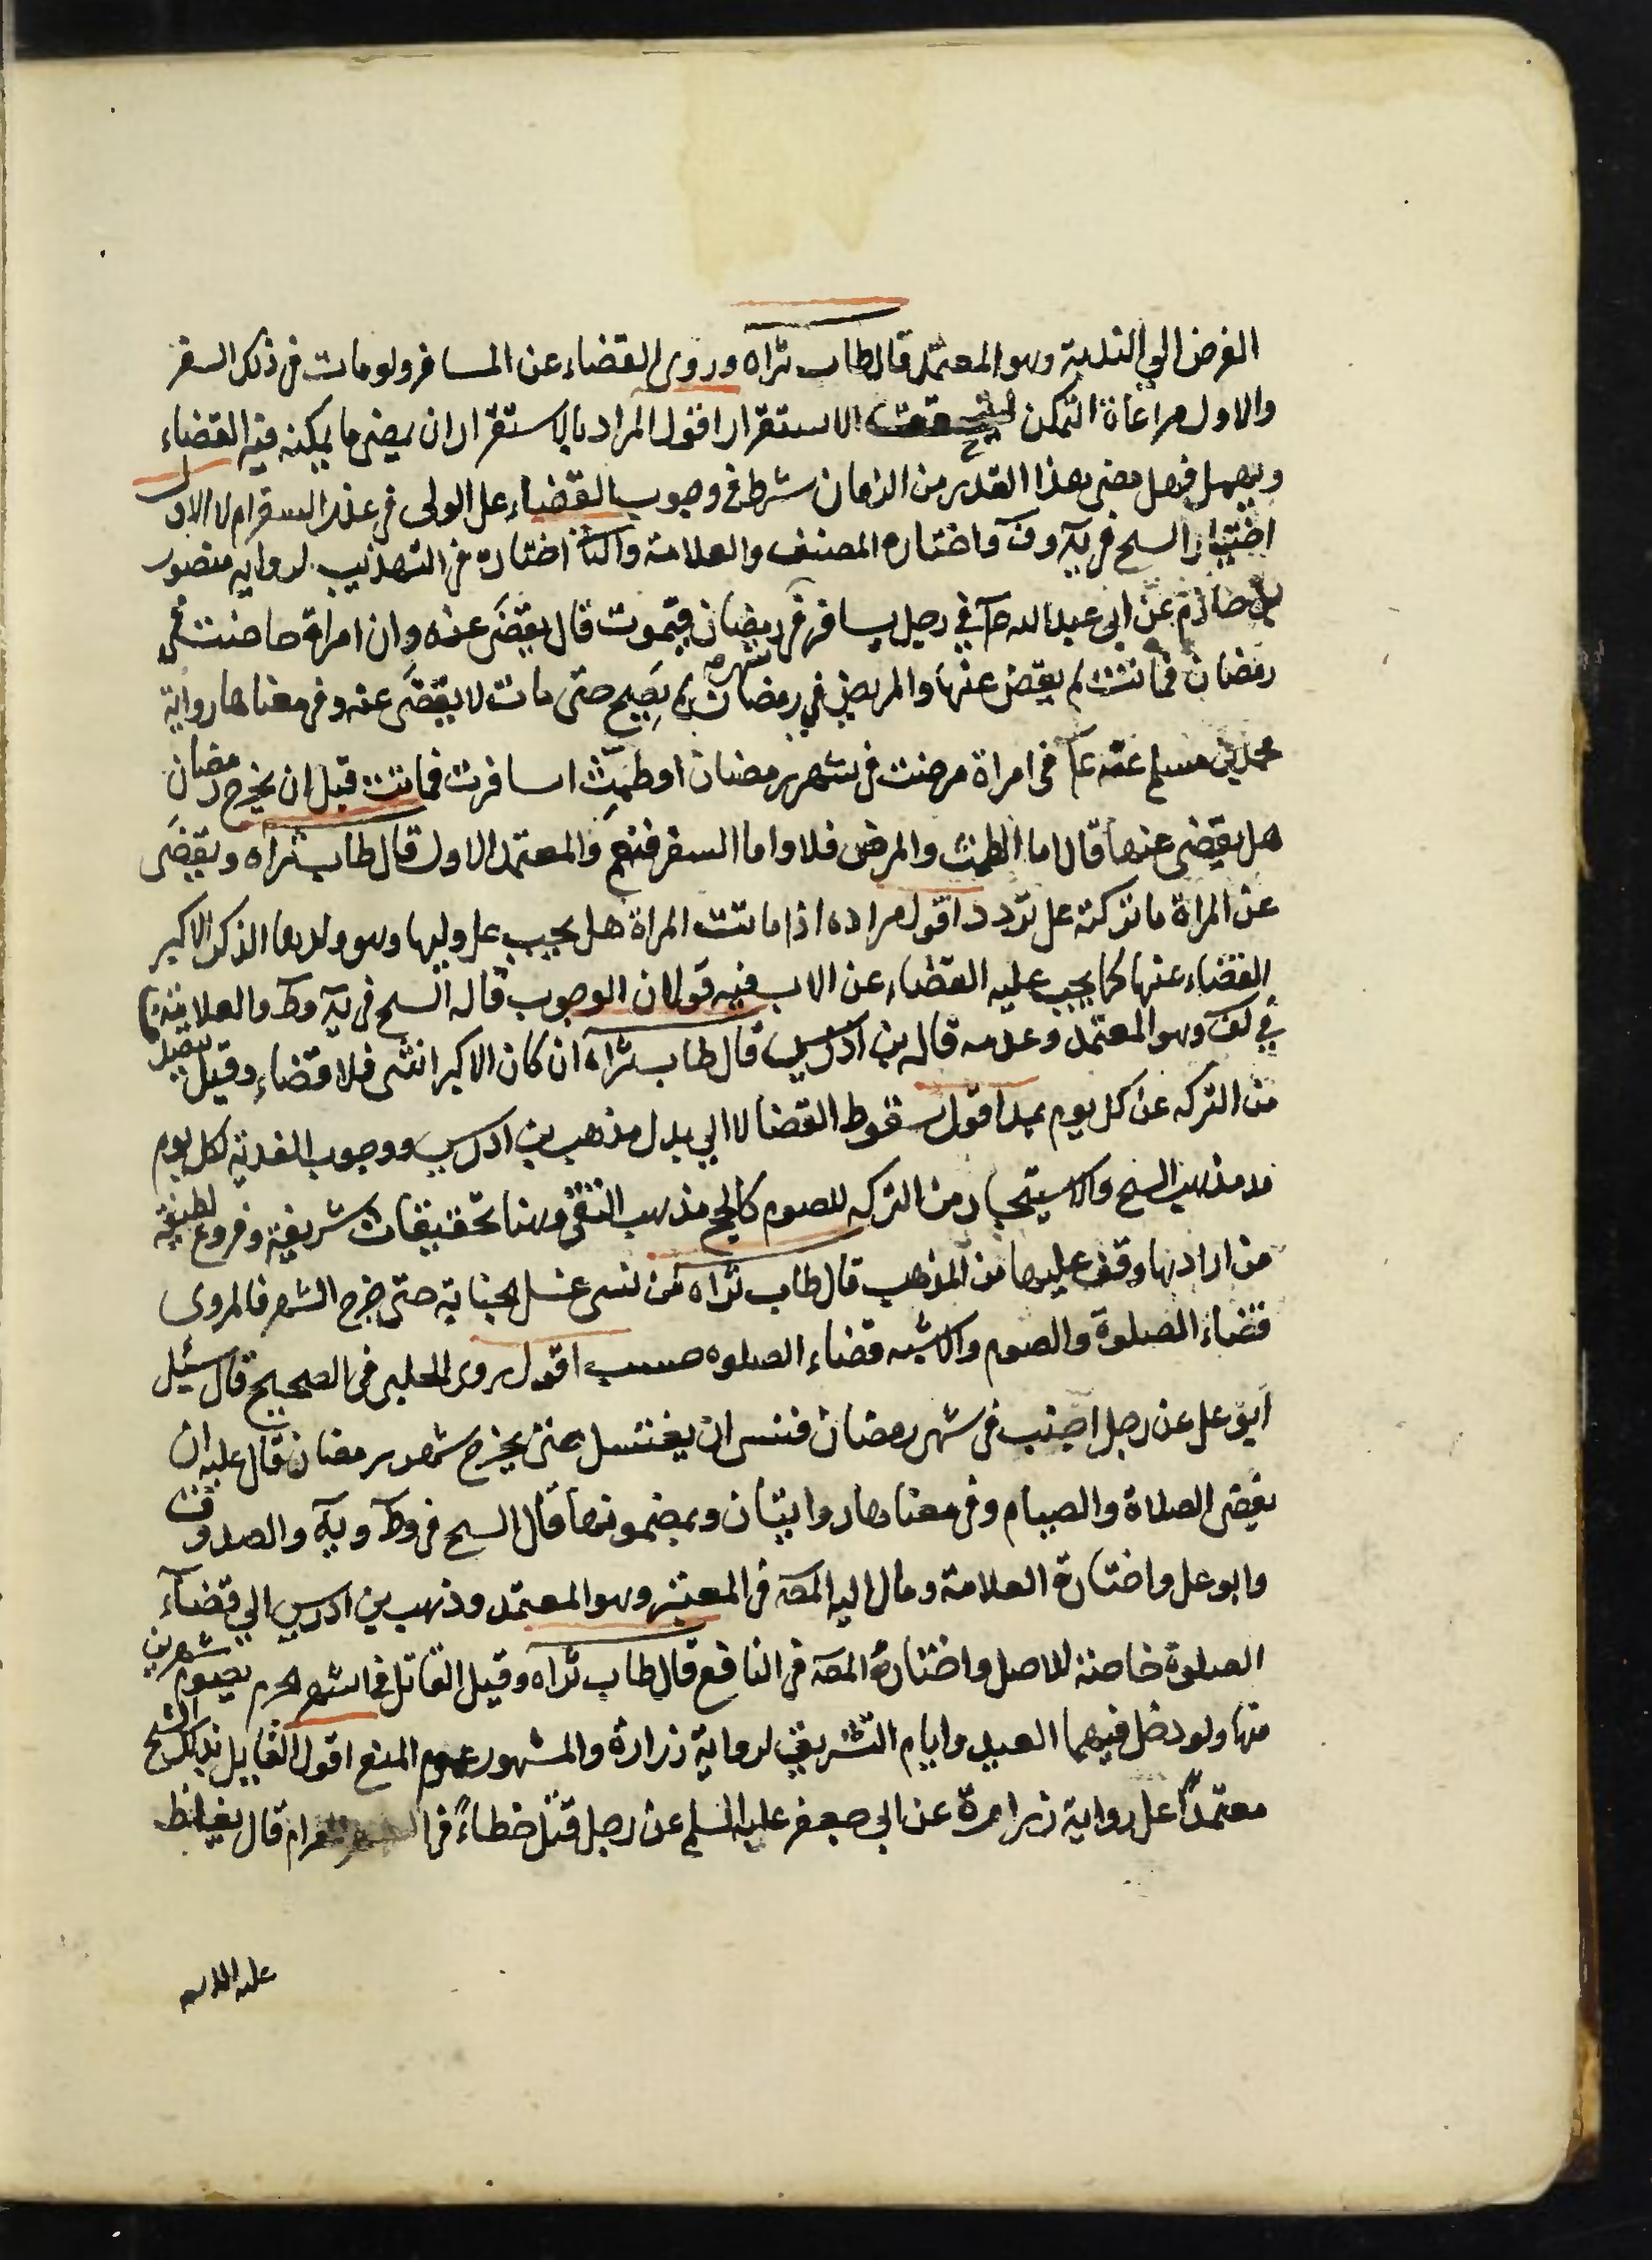 الفرض الي الندبية وهو المعتمد قال طاب ثراه وروى القضاء عن المسافر ولو مات في ذلك السفر
والاول مراعاة التمكن ليتحقق الاستقرار اقول المراد بالاستقرار ان يمضى ما يمكنه فيه القضاء
ويهمل فهل مضى هذا القدر من الزمان شرط في وجوب القضاء على الولى في عذر السفر ام لا الاول
اختيار السح في يه وف واختاره المصنف والعلامة والثا اختاره في التهذيب لرواية منصور
بن حازم عن ابى عبد الله ع في رجل يسافر في رمضان فيموت قال يقضى عنه وان امراة حاضت في
رمضان فماتت لم يقض عنها والمريض في رمضان لم يصح حتى مات لا يقضى عنه وفي معناها رواية
شهر
محمد بن مسلم عنه ع في امراة مرضت في شهر رمضان او طمثت او سافرت فماتت قبل ان يخرج رمضان
هل يقضى عنها قال اما الطمث والمرض فلا واما السفر فنعم والمعتمد الاول قال طاب ثراه ويقضى
عن المراة ما تركته على تردد اقول مراده اذا ماتت المراة هل يجب على وليها وهو ولدها الذكر الاكبر
القضاء عنها كما يجب عليه القضاء عن الاب فيه قولان الوجوب قاله السح في يه وط والعلامة
في لف وهو المعتمد وعدمه قاله بن ادريس قال طاب ثراه ان كان الاكبر انثى فلا قضاء وقيل يتصدق
من التركه عن كل يوم بمد اقول سقوط القضا لا الي بدل مذهب بن ادريس ووجوب الفدية لكل يوم
مد مذهب السح والاستيجار من التركه للصوم كالحج مذهب التقى وهنا تحقيقات شريفة وفروع لطيفة
من ارادها وقف عليها من المذهب قال طاب ثراه من نسى غسل الجنابة حتى خرج الشهر فالمروى
قضاء الصلوة والصوم والاشبه قضاء الصلوه حسب اقول روى الحلبى في الصحيح قال سئل
ابو على عن رجل اجنب في شهر رمضان فنسى ان يغتسل حتى يخرج شهر رمضان قال عليه ان
يقضى الصلاة والصيام وفي معناها روايتان وبمضمونها قال السح في وط ويه والصدوق
وابو على واختاره العلامة ومال اليه المصه في المعتبر وهو المعتمد وذهب بن ادريس الي قضآء
الصلوة خاصة للاصل واختاره المصه في النافع قال طاب ثراه وقيل القاتل في اشهر الحرم يصوم شهرين
منها ولو دخل فيهما العيد وايام التشريق لرواية زرارة والمشهور عموم المنع اقول القايل بذلك الشيخ
معتمدًا على رواية زرارة عن ابي جعفر عليه السلم عن رجل قتل خطاءً في الشهر الحرام قال يغلظ
عليه الديه